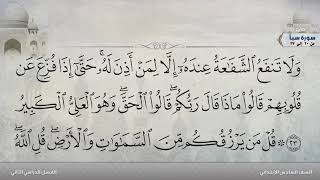 سورة سبأ
وَلَا تَنفَعُ الشَّفَٰعَةُ عِندَهُۥٓ إِلَّا لِمَنْ أَذِنَ لَهُۥ ۚ حَتَّىٰٓ إِذَا فُزِّعَ عَن
قُلُوبِهِمْ قَالُوا۟ مَاذَا قَالَ رَبُّكُمْ ۖ قَالُوا۟ الْحَقَّ ۖ وَهُوَ الْعَلِىُّ الْكَبِيرُ
٢٣ ۞ قُلْ مَن يَرْزُقُكُم مِّنَ السَّمَٰوَٰتِ وَالْأَرْضِ ۖ قُلِ اللَّهُ ۖ
الصف السادس الابتدائي
الفصل الدراسي الثاني